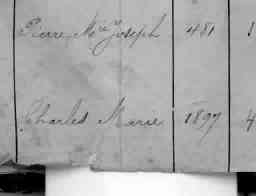 Pierre Mie Joseph 481 1
Charles Marie 1897 4